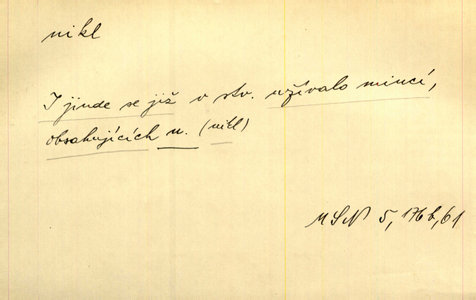 nikl
I jinde se již v stv. užívalo mincí,
obsahujících n. (nikl)
MSN 5, 176b, 61